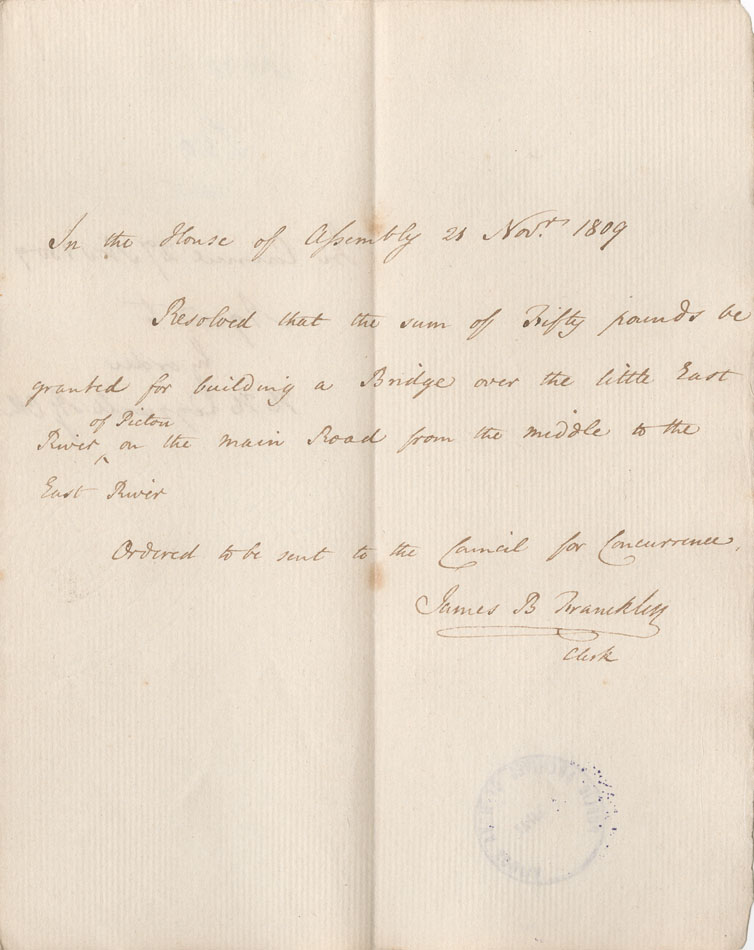 In the House of Assembly 21 Nov.r 1809
Resolved that the sum of Fifty pounds be
granted for building a Bridge over the little East
of Pictou
River ^ on the main Road from the middle to the
East River
Ordered to be sent to the Council for Concurrence.
James B Francklin
Clerk